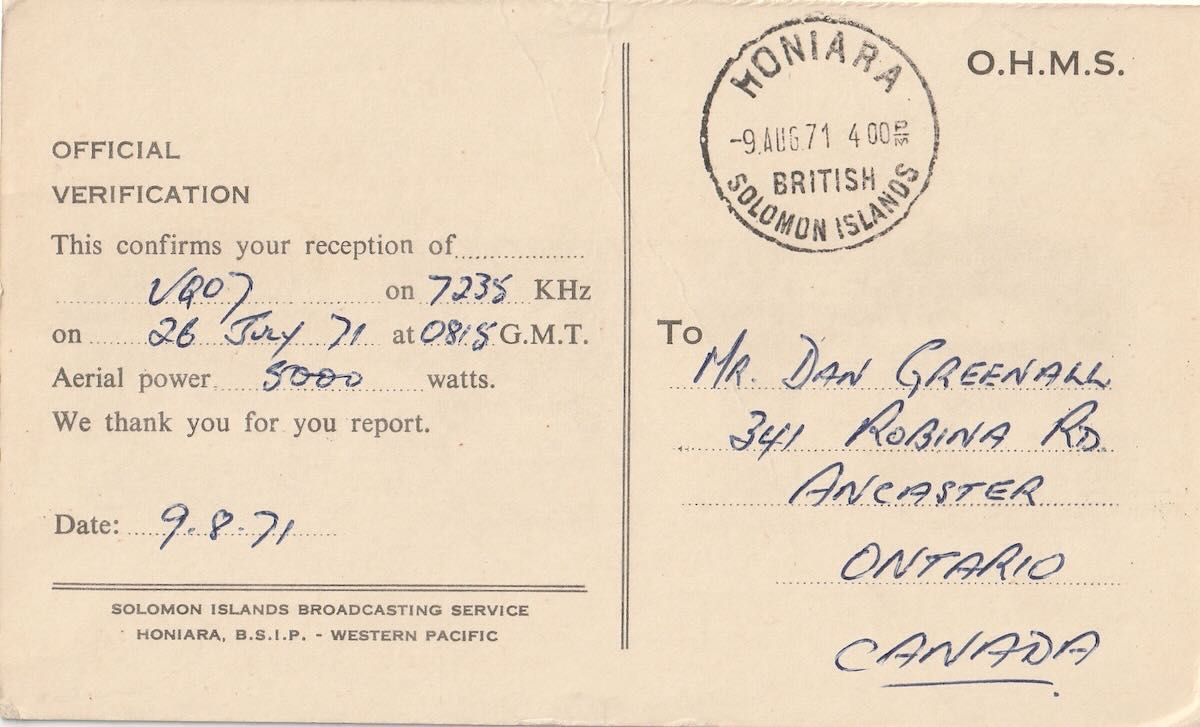 OFFICIAL
VERIFICATION
This confirms your reception of
VQO7 on 7235 KHz
on 26 July 71 at 0815 G.M.T.
Aerial power 5000 watts.
We thank you for you report.
Date: 9.8.71
SOLOMON ISLANDS BROADCASTING SERVICE
HONIARA, B.S.I.P. - WESTERN PACIFIC
HONIARA
-9.AUG.71 4 00 PM
BRITISH
SOLOMON ISLANDS
O.H.M.S.
To
MR. DAN GREENALL
341 ROBINA RD.
ANCASTER
ONTARIO
CANADA